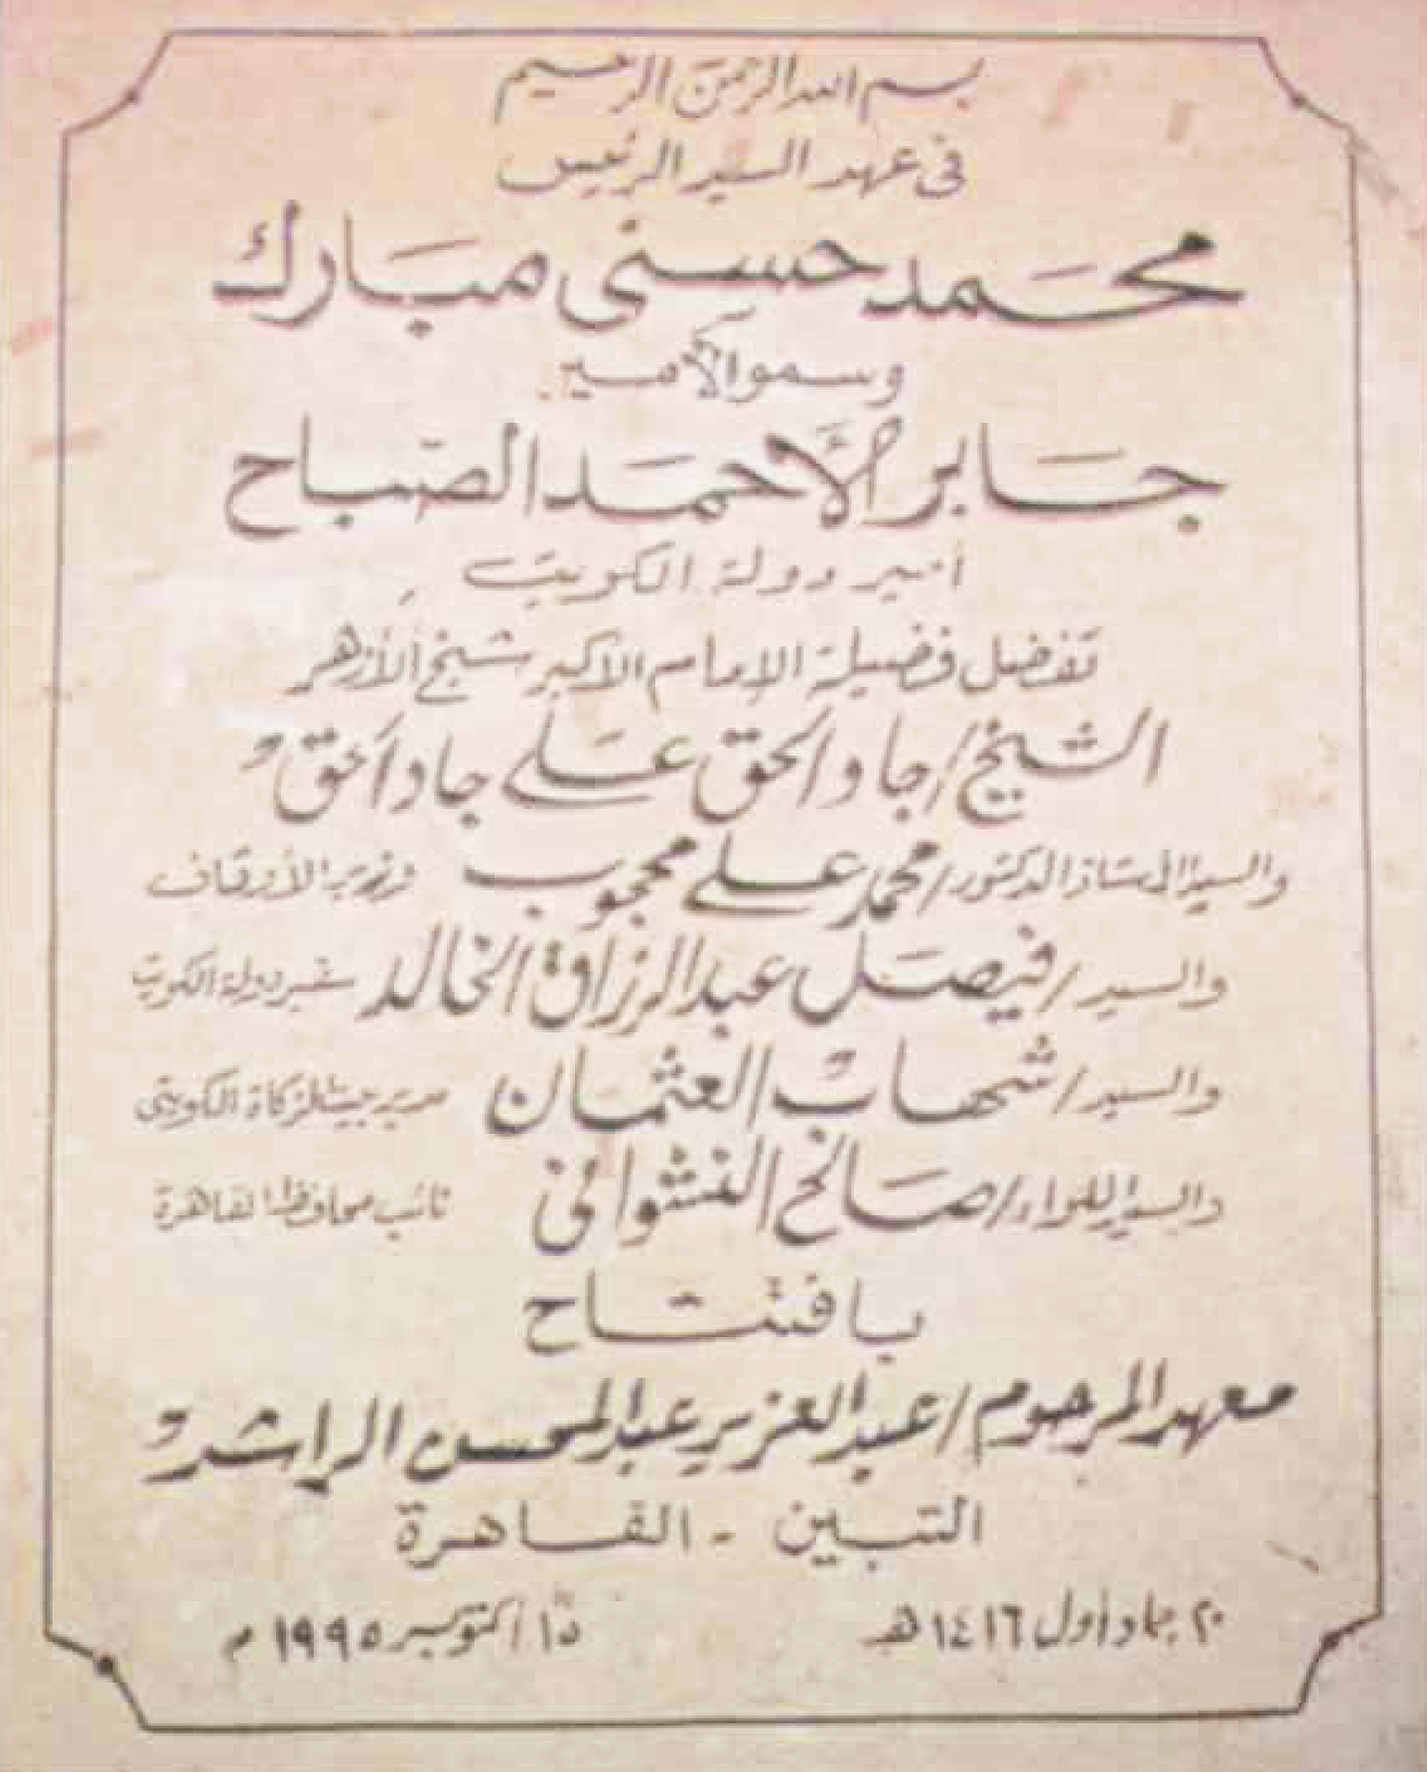 بسم الله الرحمن الرحيم
فى عهد السيد الرئيس
محمد حسنى مبارك
وسمو الأمير
جابر الأحمد الصباح
أمير دولة الكويت
تفضل فضيلة الإمام الأكبر شيخ الأزهر
الشيخ / جاد الحق على جاد الحق
والسيد الأستاذ الدكتور / محمد على محجوب وزير الأوقاف
والسيد / فيصل عبد الرزاق الخالد سفير دولة الكويت
والسيد / شهاب العثمان مدير بيت الزكاة الكويتى
والسيد اللواء / صالح النشواتى نائب محافظ القاهرة
بافتتاح
معهد المرحوم / عبد العزيز عبد المحسن الراشد
التبين - القاهرة
٢٠ جماد أول ١٤١٦ هـ ١٥ أكتوبر ١٩٩٥ م